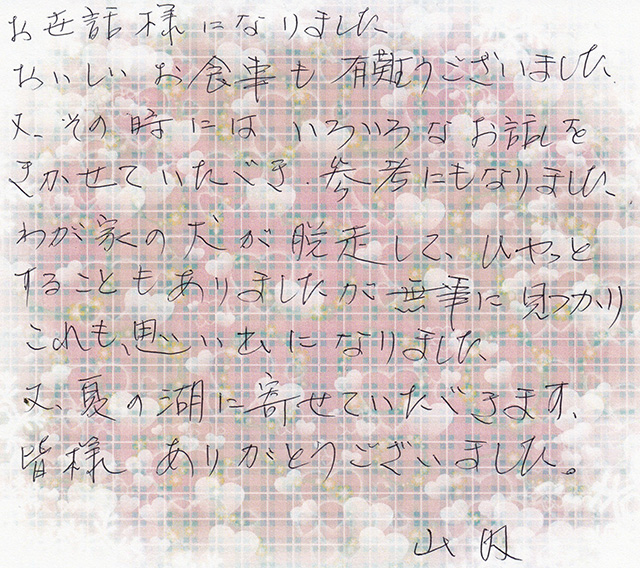 お世話様になりました
おいしいお食事も有難うございました。
又、その時にはいろいろなお話しを
きかせていただき、参考にもなりました、
わが家の犬が脱走して、ひやっと
することもありましたが無事に見つかり
これも、思い出になりました、
又、夏の湖に寄せていただきます、
皆様 ありがとうございました。
山田